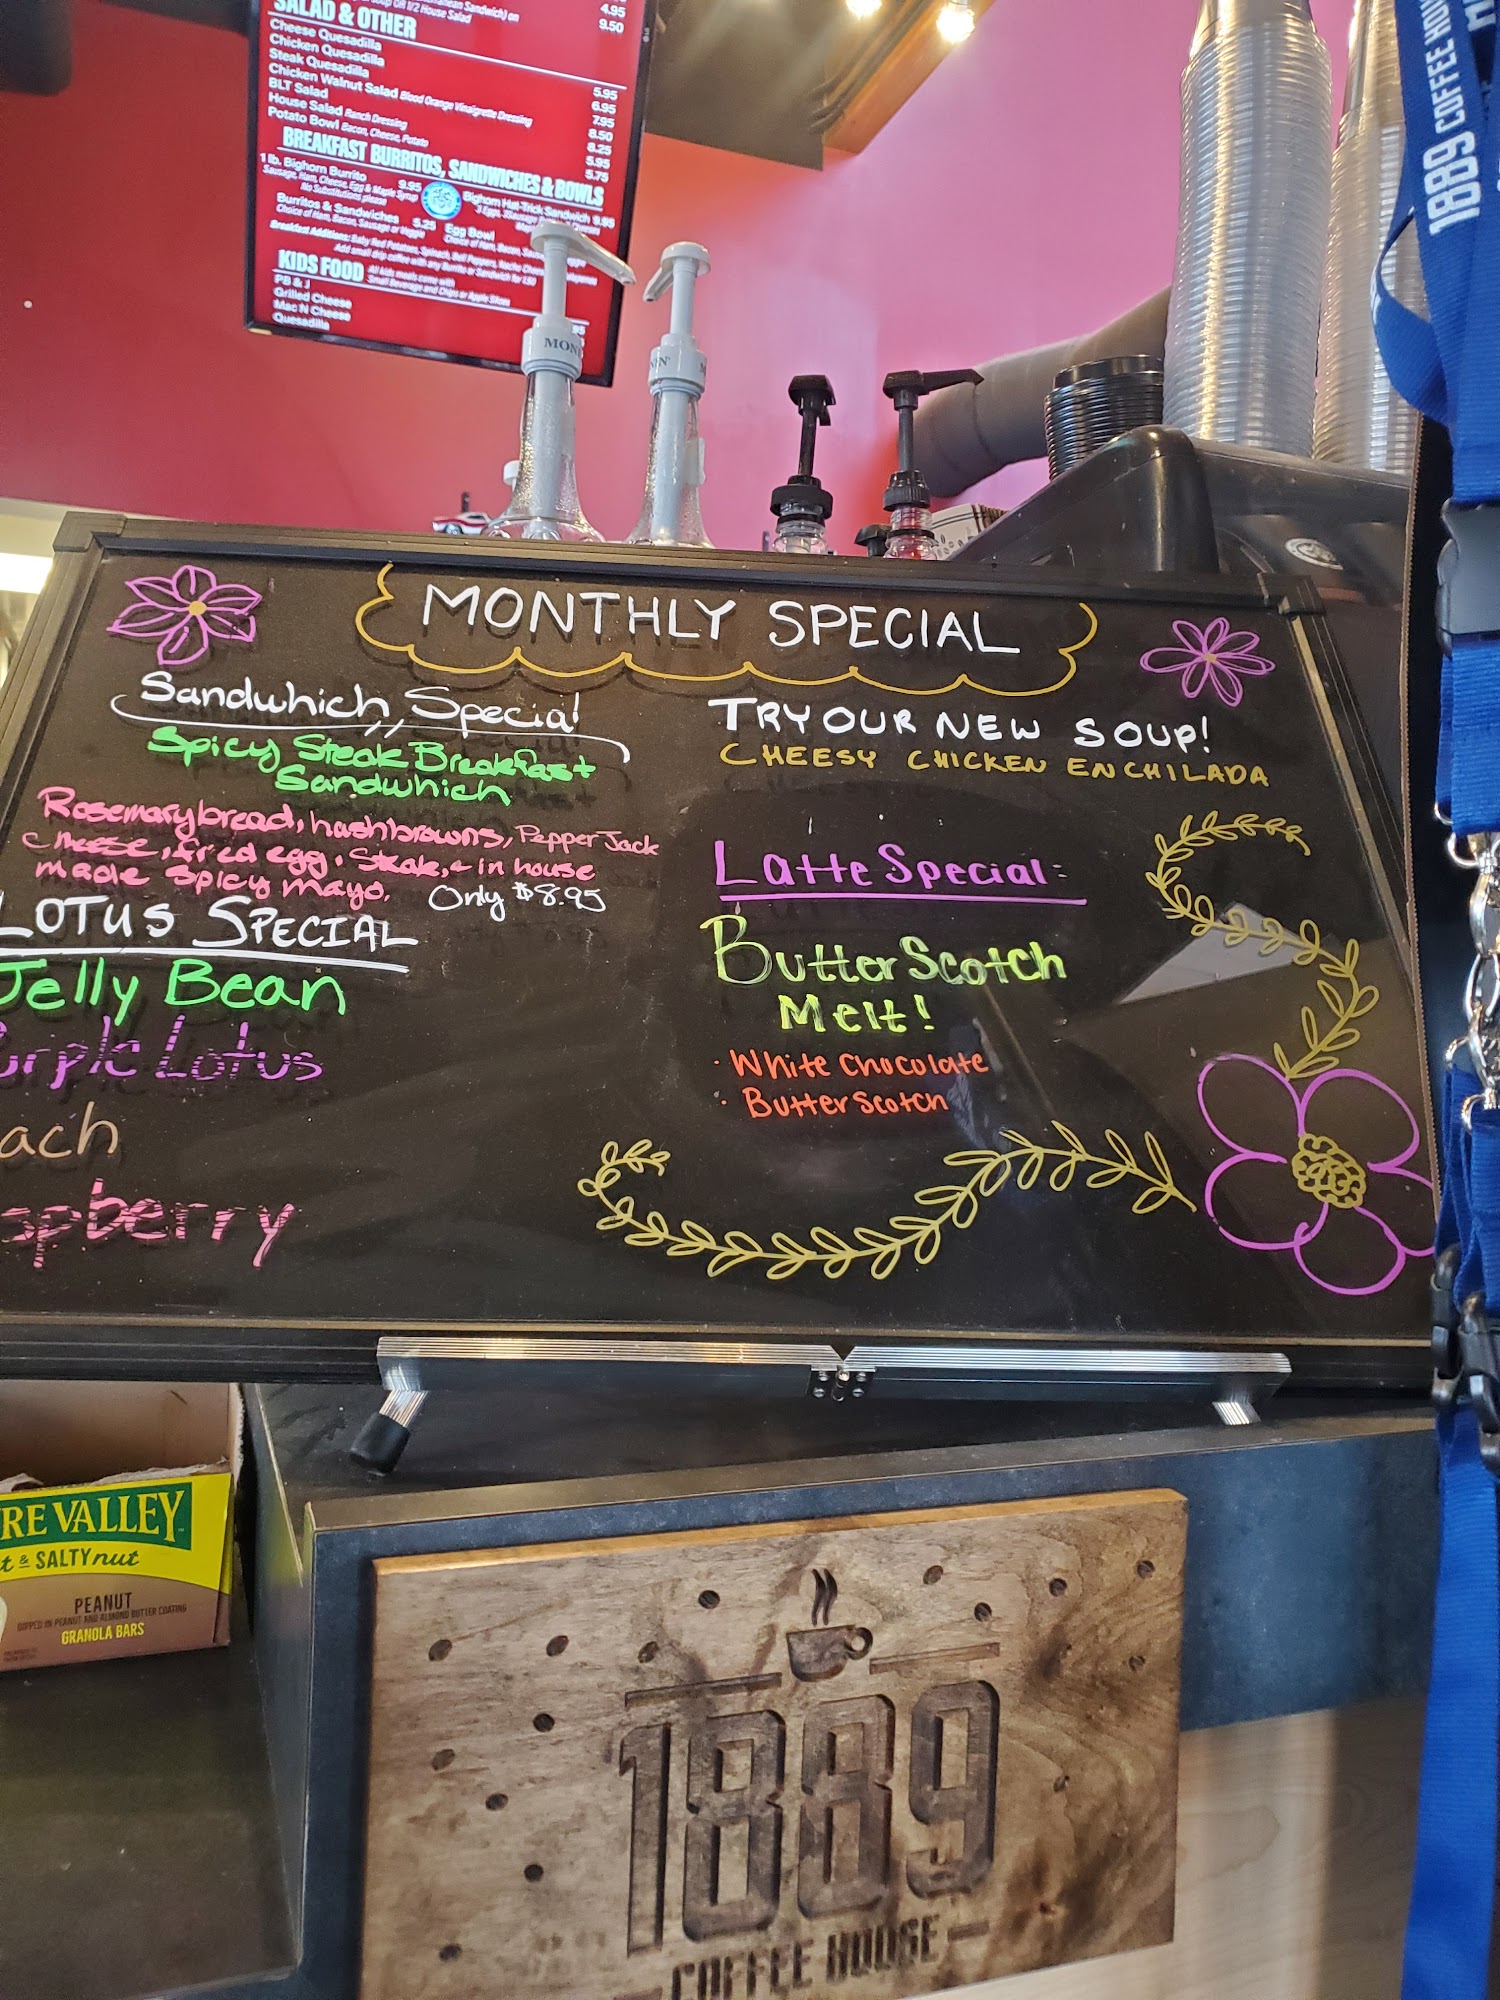 Sandwich) on
1/2 House Salad
4.95
9.50
SALAD & OTHER
Cheese Quesadilla 5.95
Chicken Quesadilla 6.95
Steak Quesadilla 7.95
Chicken Walnut Salad Blood Orange Vinaigrette Dressing 8.50
BLT Salad 8.25
House Salad Ranch Dressing 5.95
Potato Bowl Bacon, Cheese, Potato 5.75
BREAKFAST BURRITOS, SANDWICHES & BOWLS
1 lb. Bighorn Burrito 9.95
Sausage, Ham, Cheese, Egg & Maple Syrup
No Substitutions please
Bighorn Hat-Trick Sandwich 9.95
Burritos & Sandwiches 5.25
Choice of Ham, Bacon, Sausage or Veggie
Egg Bowl
Choice of Ham, Bacon,
Breakfast Additions: Baby Red Potatoes, Spinach, Bell Peppers, Nacho
Add small drip coffee with any Burrito or Sandwich for 1.50
KIDS FOOD All kids meals come with
Small Beverage and Chips or Apple Slices
PB & J
Grilled Cheese
Mac N Cheese
Quesadilla
MONTHLY SPECIAL
Sandwhich Special
Spicy Steak Breakfast
Sandwhich
Rosemary bread, hashbrowns, Pepper Jack
cheese, fried egg, Steak, & in house
made spicy mayo. Only $8.95
LOTUS SPECIAL
Jelly Bean
Purple Lotus
ach
spberry
TRY OUR NEW SOUP!
CHEESY CHICKEN ENCHILADA
Latte Special:
Butter Scotch
Melt!
· White Chocolate
· Butter Scotch
1889 COFFEE HOU
RE VALLEY
t & SALTY nut
PEANUT
DIPPED IN PEANUT AND ALMOND BUTTER COATING
GRANOLA BARS
1889
COFFEE HOUSE